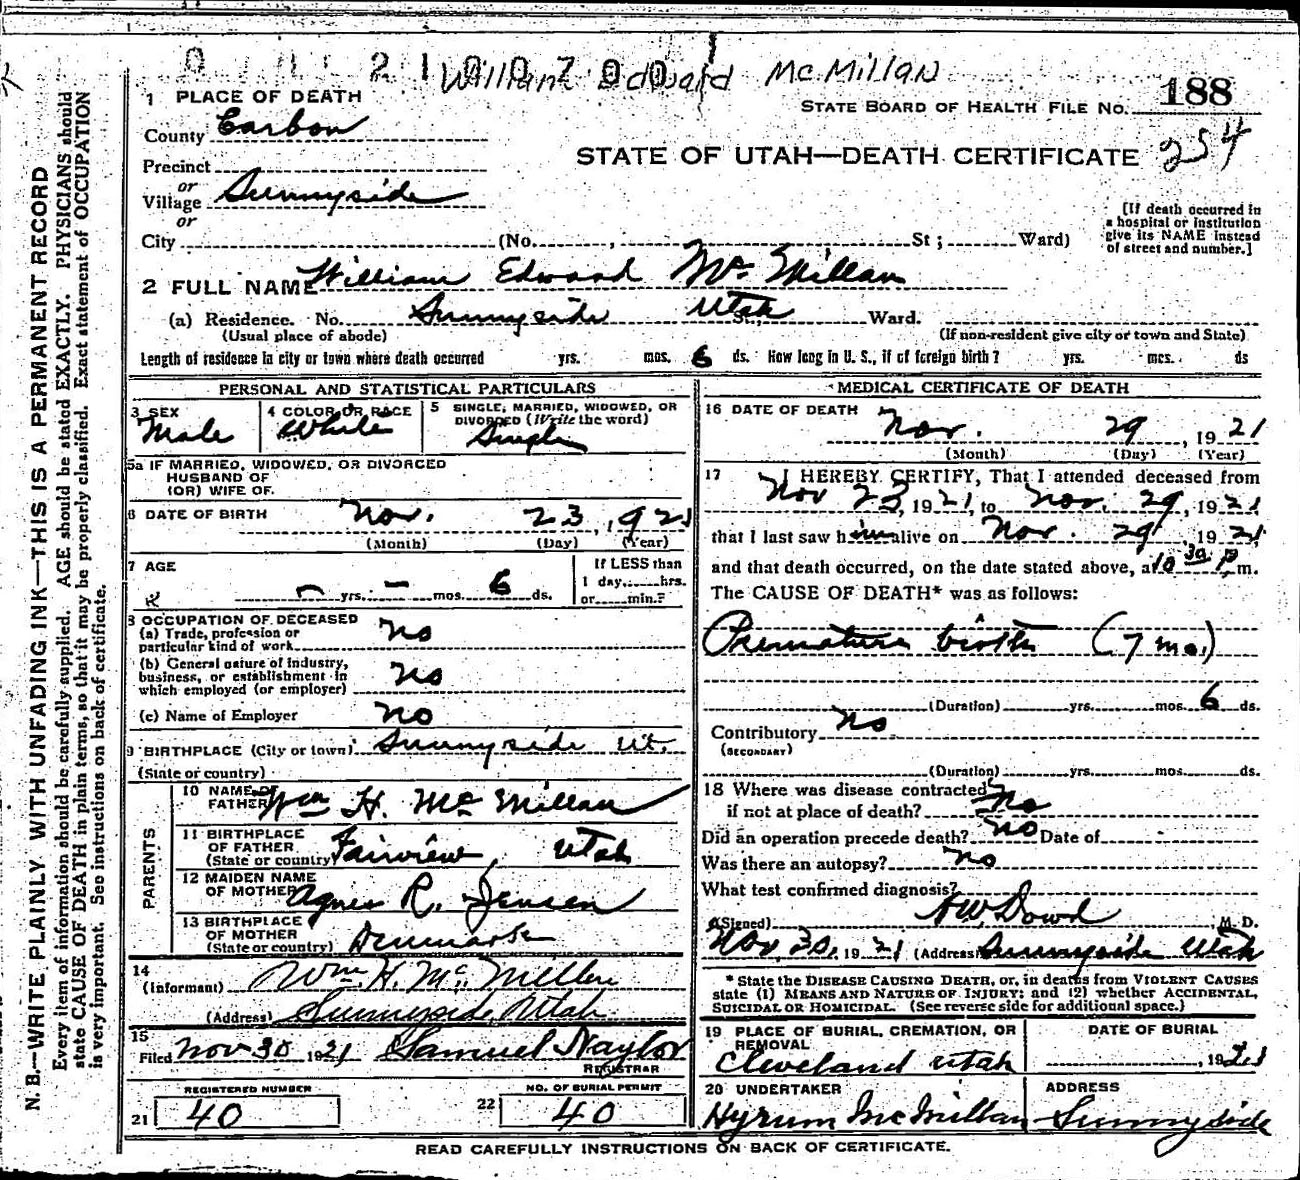 0 21 0070 0 1
William Edward McMillan
STATE BOARD OF HEALTH FILE NO. 188
254
STATE OF UTAH—DEATH CERTIFICATE
1 PLACE OF DEATH
County Carbon
Precinct
or
Village Sunnyside
or
City (No. , St ; Ward)
[If death occurred in
a hospital or institution
give its NAME instead
of street and number.]
2 FULL NAME William Edward Mc Millan
(a) Residence. No. Sunnyside Utah St., Ward.
(Usual place of abode) (If non-resident give city or town and State)
Length of residence in city or town where death occurred yrs. mos. 6 ds. How long in U. S., if of foreign birth? yrs. mos. ds
PERSONAL AND STATISTICAL PARTICULARS
3 SEX Male
4 COLOR OR RACE White
5 SINGLE, MARRIED, WIDOWED, OR
DIVORCED (Write the word)
Single
5a IF MARRIED, WIDOWED, OR DIVORCED
HUSBAND OF
(OR) WIFE OF.
6 DATE OF BIRTH Nov. 23, 1921
(Month) (Day) (Year)
7 AGE
– yrs. – mos. 6 ds.
If LESS than
1 day, hrs.
or min.?
8 OCCUPATION OF DECEASED
(a) Trade, profession or
particular kind of work no
(b) General nature of industry,
business, or establishment in
which employed (or employer) no
(c) Name of Employer no
9 BIRTHPLACE (City or town) Sunnyside Ut.
(State or country)
PARENTS
10 NAME OF
FATHER Wm H. Mc Millan
11 BIRTHPLACE
OF FATHER
(State or country) Fairview, Utah
12 MAIDEN NAME
OF MOTHER Agnes R. Jensen
13 BIRTHPLACE
OF MOTHER
(State or country) Denmark
14
(Informant) Wm. H. Mc. Millen
(Address) Sunnyside Utah
15
Filed Nov 30 1921 Samuel Naylor
REGISTRAR
REGISTERED NUMBER
21 40
NO. OF BURIAL PERMIT
22 40
MEDICAL CERTIFICATE OF DEATH
16 DATE OF DEATH
Nov. 29, 1921
(Month) (Day) (Year)
17 I HEREBY CERTIFY, That I attended deceased from
Nov 23, 1921, to Nov. 29, 1921,
that I last saw him alive on Nov. 29, 1921,
and that death occurred, on the date stated above, at 10 30 P. m.
The CAUSE OF DEATH* was as follows:
Premature birth (7 mo.)
(Duration) yrs. mos. 6 ds.
Contributory no
(SECONDARY)
(Duration) yrs. mos. ds.
18 Where was disease contracted
if not at place of death? no
Did an operation precede death? no Date of
Was there an autopsy? no
What test confirmed diagnosis?
(Signed) A W Dowd M. D.
Nov, 30, 1921 (Address) Sunnyside Utah
* State the DISEASE CAUSING DEATH, or, in deaths from VIOLENT CAUSES
state (1) MEANS AND NATURE OF INJURY; and (2) whether ACCIDENTAL,
SUICIDAL OR HOMICIDAL. (See reverse side for additional space.)
19 PLACE OF BURIAL, CREMATION, OR
REMOVAL
Cleveland Utah
DATE OF BURIAL
, 1921
20 UNDERTAKER
Hyrum McMillan
ADDRESS
Sunnyside
READ CAREFULLY INSTRUCTIONS ON BACK OF CERTIFICATE.
N. B.—WRITE PLAINLY WITH UNFADING INK—THIS IS A PERMANENT RECORD
Every item of information should be carefully supplied. AGE should be stated EXACTLY. PHYSICIANS should
state CAUSE OF DEATH in plain terms, so that it may be properly classified. Exact statement of OCCUPATION
is very important. See instructions on back of certificate.